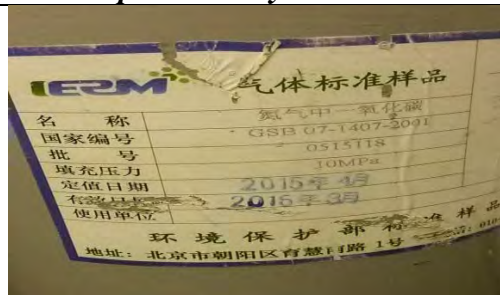 IERM 气体标准样品
名 称 氮气中一氧化碳
国家编号 GSB 07-1407-2001
批 号 0515118
填充压力 10MPa
定值日期 2015年4月
有效日期 2016年3月
使用单位
环境保护部标准样品
地址：北京市朝阳区育慧南路1号